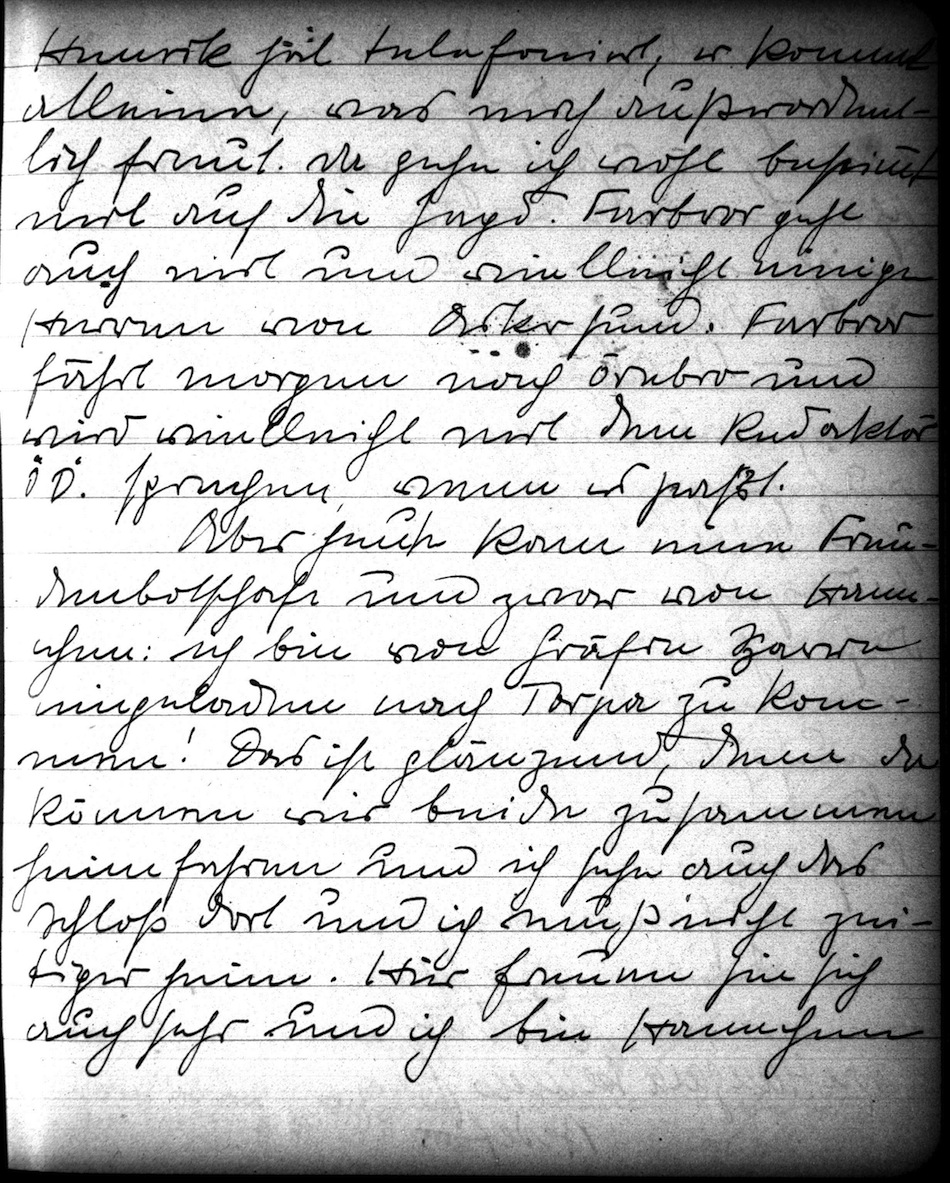 Henrik hat telefoniert, er kommt
alleine, was mich außerordent-
lich freut. Da gehe ich wohl bestimmt
mit auf die Jagd. Farbror geht
auch mit und vielleicht einige
Herren von Askersund. Farbror
fährt morgen nach Örebro und
wird vielleicht mit dem Redaktör
Ö.D. sprechen, wenn es paßt.
Aber heute kam eine Freu-
denbotschaft und zwar von Hann-
chen: ich bin von Gräfin
eingeladen nach Torpa zu kom-
men! Das ist glänzend, denn da
können wir beide zusammen
heimfahren und ich sehe auch das
Schloß dort und ich muß nicht zei-
tiger heim. Hier freuen sie sich
auch sehr und ich bin Hannchen